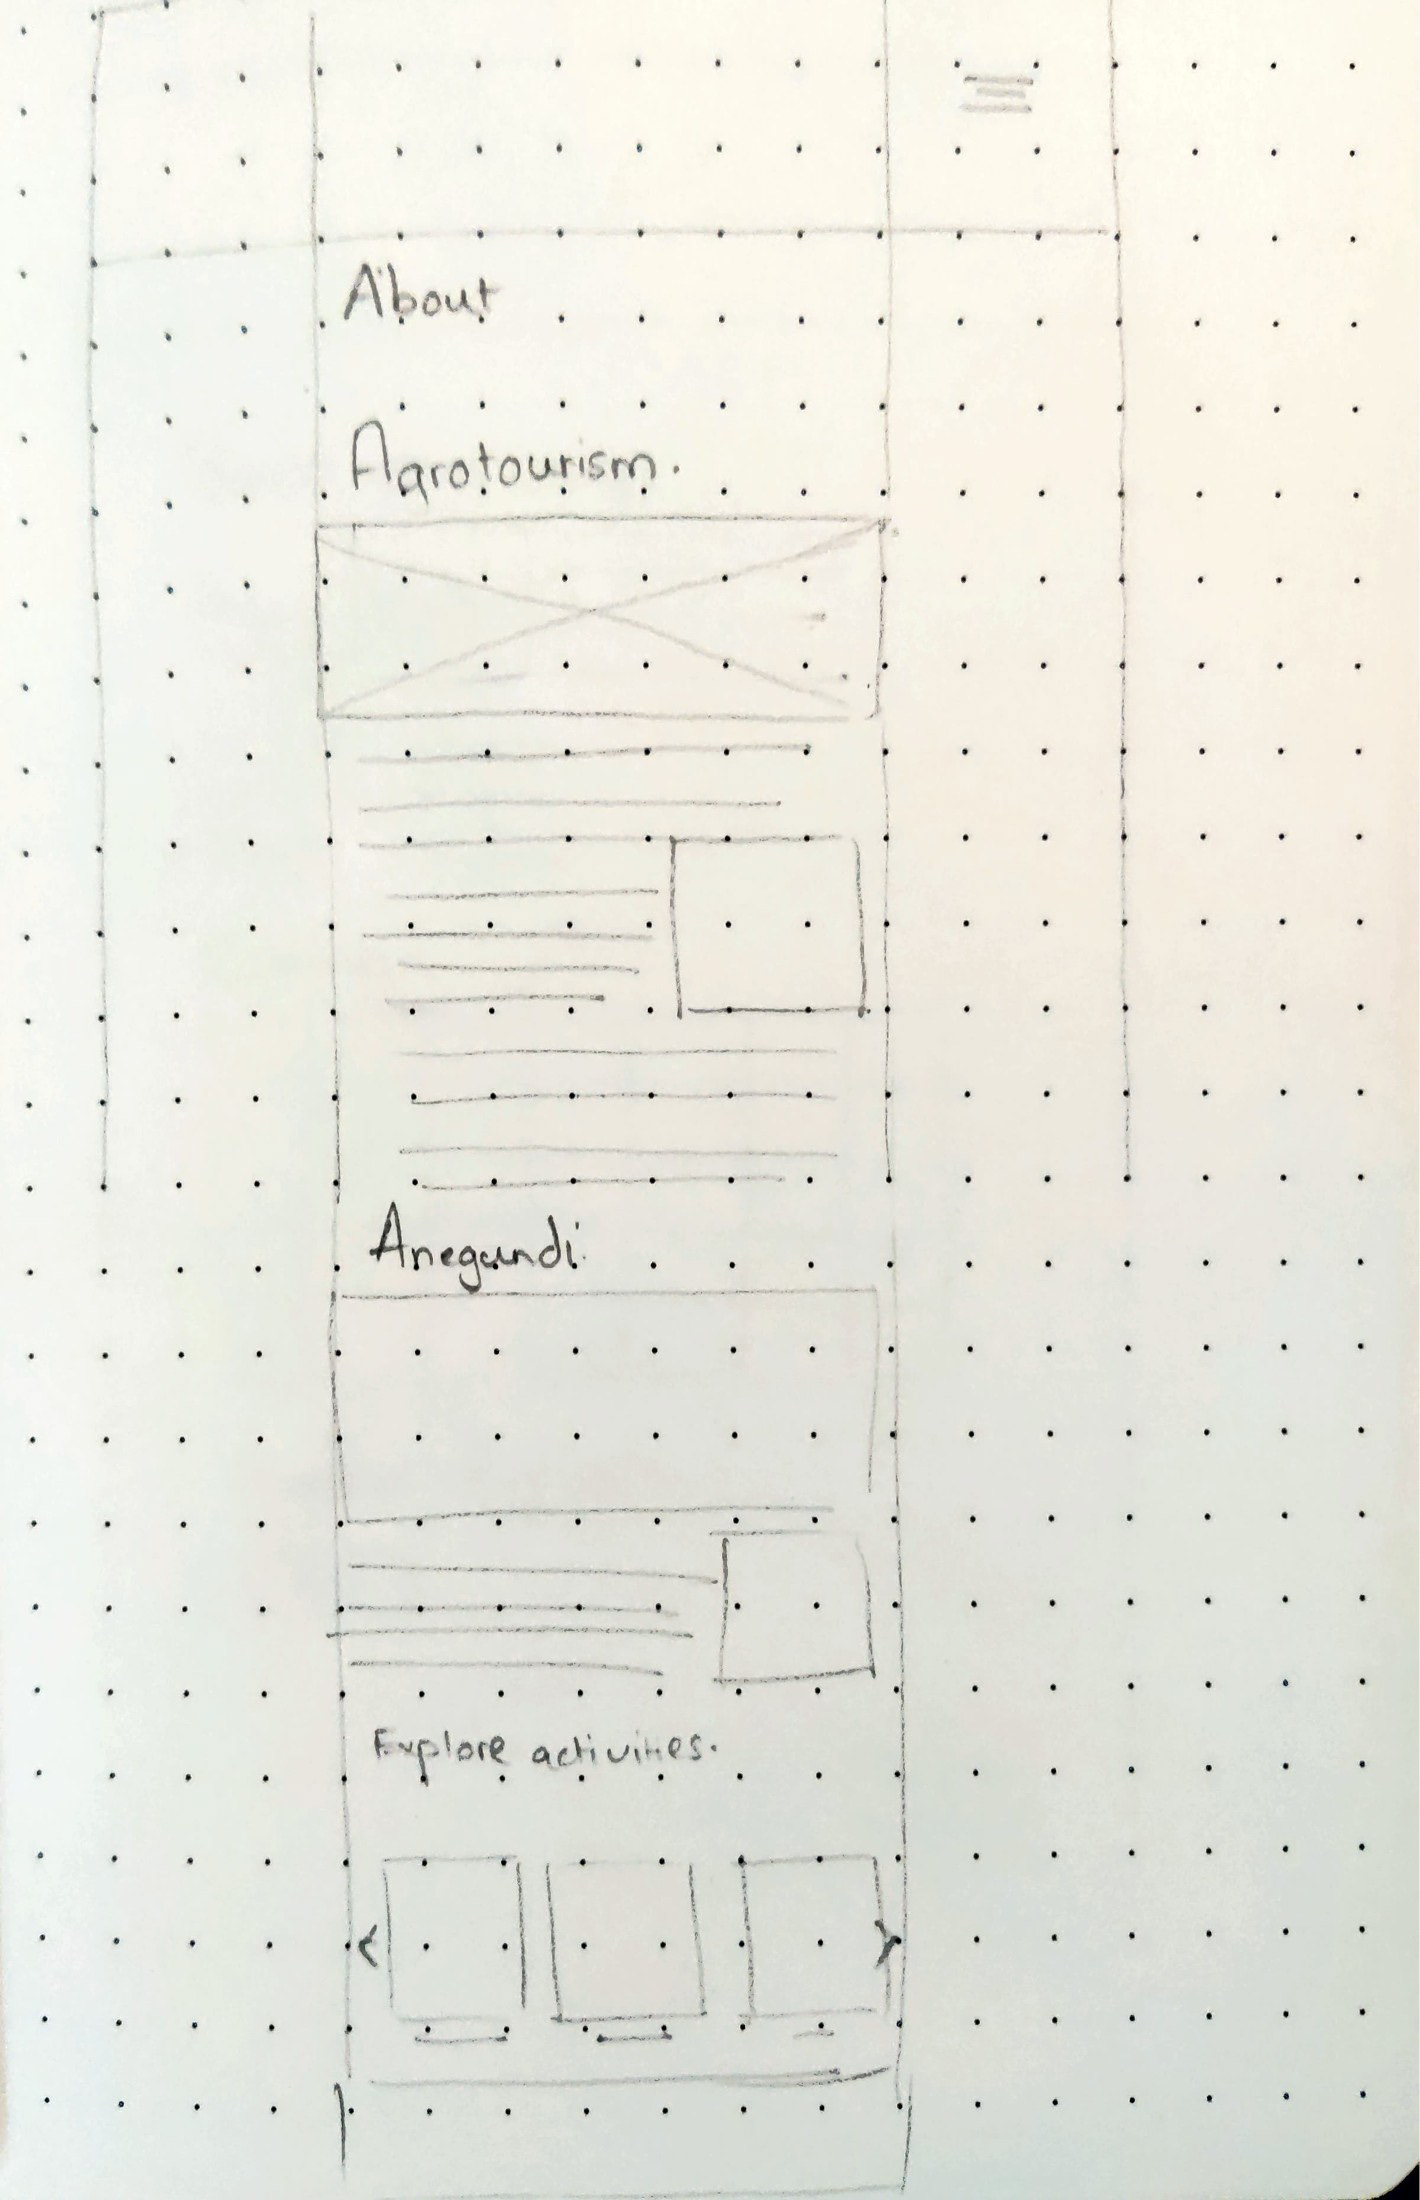 About
Agrotourism.
Anegundi
Explore activities.